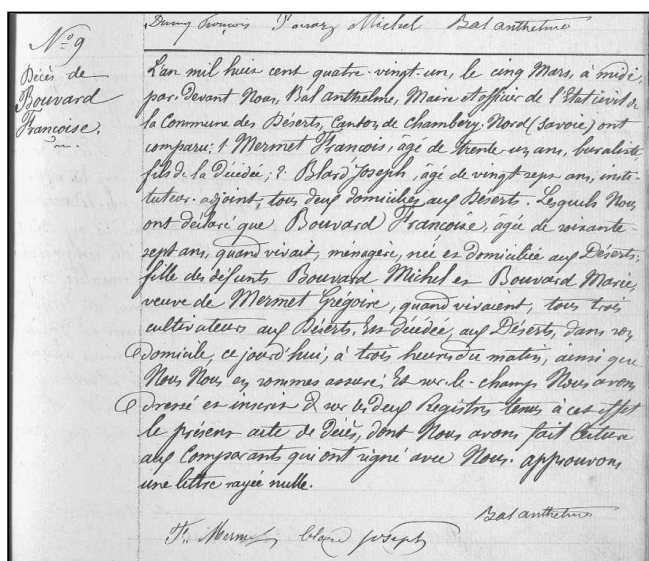 Michel Bal anthelme
N° 9
Décès de
Bouvard
Francoise.
L'an mil huit cent quatre-vingt-un, le cinq Mars, à midi,
par-devant Nous, Bal anthelme, Maire et officier de l'Etat civil de
la Commune des Déserts, Canton de Chambéry-Nord (Savoie) ont
comparu: 1° Mermet Francois, agé de trente-un ans, buraliste,
fils de la Décédée; 2° Blard Joseph, âgé de vingt sept ans, insti-
tuteur-adjoint, tous deux domiciliés aux Déserts. Lesquels Nous
ont déclaré que Bouvard Francoise, agée de soixante-
sept ans, quand vivait, ménagère, née et domiciliée aux Déserts,
fille des défunts Bouvard Michel et Bouvard Marie,
veuve de Mermet Grégoire, quand vivaient, tous trois
cultivateurs aux Déserts, Est décédée, aux Déserts, dans son
domicile, ce jourd'hui, à trois heures du matin, ainsi que
Nous Nous en sommes assuré; Et sur-le-champ Nous avons
dressé et inscrit sur les deux Registres tenus à cet effet
le présent acte de Décès, dont Nous avons fait lecture
aux Comparants qui ont signé avec Nous. approuvons
une lettre rayée nulle.
Bal anthelme
F. Mermet Blard Joseph